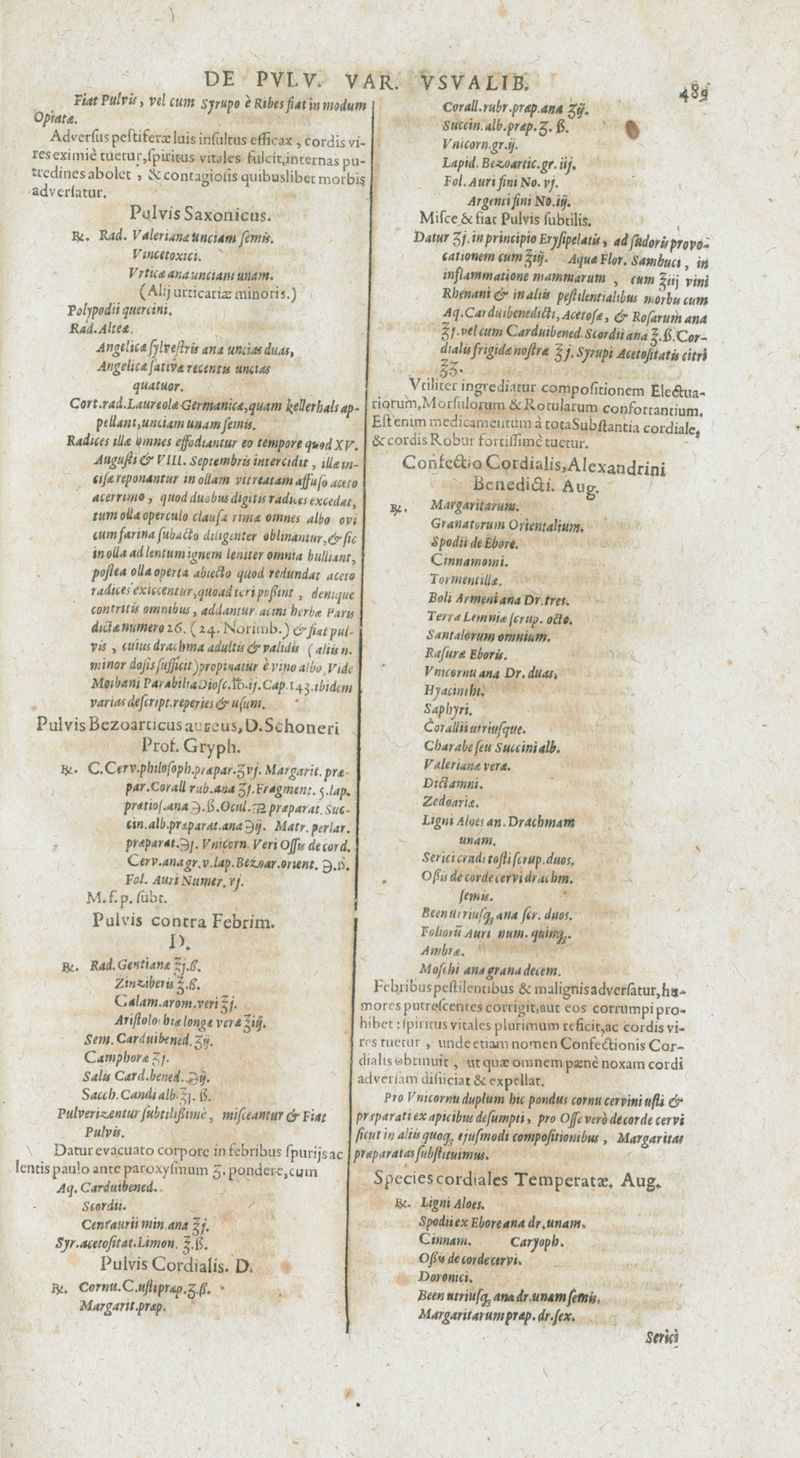 DE PVLV. VAR. VSVALIB. 489
Fiat Pulvis, vel cum Syrupo è Ribes fiat in modum
Opiatæ.
Adversus pestiferæ luis insultus efficax, cordis vi-
res eximiè tuetur, spiritus vitales fulcit, internas pu-
tredines abolet, & contagiosis quibuslibet morbis
adversatur.
Pulvis Saxonicus.
℞. Rad. Valeriana unciam semis.
Vincetoxici.
Vrticæ ana unciam unam.
(Alij urticariæ minoris.)
Polypodii quercini.
Rad. Alteæ.
Angelicæ sylvestris ana uncias duas,
Angelicæ sativæ recentis uncias
quatuor.
Cort. rad. Laureolæ Germanicæ, quam kellerhals ap-
pellant, unciam unam semis.
Radices illæ omnes effodiantur eo tempore quod XV.
Augusti & VIII. Septembris intercidit, illæ in-
cisæ reponantur in ollam vitreatam affuso aceto
acerrimo, quod duobus digitis radices excedat,
tum olla operculo clausa rimæ omnes albo ovi
cum farina subacto diligenter oblinantur, & sic
in olla ad lentum ignem leniter omnia bulliant,
postea olla operta abiecto quod redundat aceto
radices exiccentur, quoad teri possint, denique
contritis omnibus, addantur acini herbæ Paris
dictæ numero 26. (24. Norimb.) & fiat pul-
vis, cuius drachma adultis & validis (aliis n.
minor dosis sufficit) propinatur è vino albo. Vide
Moibani Parabilia Diosc. lib. ij. Cap. 143. ibidem
varias descript. reperies & usum.
Pulvis Bezoarticus aureus, D. Schoneri
Prof. Gryph.
℞. C. Cerv. philosoph. præpar. ʒvj. Margarit. præ-
par. Corall rub. ana ʒj. Fragment. 5. lap.
pratios. ana ℈. ß. Ocul. ♋ præparat. Suc-
cin. alb. præparat. ana ℈ij. Matr. perlar.
præparat. ℈j. Vnicorn. Veri Ossis de cord.
Cerv. ana gr. v. lap. Bezoar. orient. ℈. ß.
Fol. Auri Numer. vj.
M. f. p. subt.
Pulvis contra Febrim.
D.
℞. Rad. Gentianæ ℥j. ß.
Zinziberis ℥. ß.
Calam. arom. veri ℥j.
Aristolochiæ longæ veræ ℥iij.
Sem. Cardui bened. ʒij.
Camphoræ ʒj.
Salis Card. bened. ℈ij.
Sacch. Candi alb. ℥j. ß.
Pulverizentur subtilissimè, misceantur & Fiat
Pulvis.
Datur evacuato corpore in febribus spurijs ac
lentis paulo ante paroxysmum ʒ. pondere, cum
Aq. Cardui bened.
Scordii.
Centaurii min. ana ℥j.
Syr. acetositat. Limon. ℥. ß.
Pulvis Cordialis. D.
℞. Cornu. C. usti præp. ʒ. ß.
Margarit. præp.
Corall. rubr. præp. ana ʒij.
Succin. alb. præp. ʒ. ß.
Vnicorn. gr. ij.
Lapid. Bezoartic. gr. iij.
Fol. Auri fini No. vj.
Argenti fini No. iij.
Misce & fiat Pulvis subtilis.
Datur ʒj. in principio Erysipelatis, ad sudoris provo-
cationem cum ℥iij. Aquæ Flor. Sambuci, in
inflammatione mammarum, cum ℥iij vini
Rhenani & in aliis pestilentialibus morbis cum
Aq. Cardui benedicti, Acetosæ, & Rosarum ana
℥j. vel cum Cardui bened. Scordii ana ℥. ß. Cor-
dialis frigidæ nostræ ℥j. Syrupi Acetositatis citri
Vtiliter ingrediatur compositionem Electua-
riorum, Morsulorum & Rotularum confortantium.
Est enim medicamentum à tota Substantia cordiale,
& cordis Robur fortissimè tuetur.
Confectio Cordialis, Alexandrini
Benedicti. Aug.
℞. Margaritarum.
Granatorum Orientalium.
Spodii de Ebore.
Cinnamomi.
Tormentillæ.
Boli Armeni ana Dr. tres.
Terræ Lemniæ scrup. octo.
Santalorum omnium.
Rasuræ Eboris.
Vnicornu ana Dr. duas,
Hyacinthi.
Saphyri.
Corallii utriusque.
Charabe seu Succini alb.
Valerianæ veræ.
Dictamni.
Zedoariæ.
Ligni Aloes an. Drachmam
unam.
Serici crudi tosti scrup. duos.
Ossis de corde cervi drachm.
semis.
Been utriusq; ana scr. duos.
Foliorū Auri num. quinq;.
Ambræ.
Moschi ana grana decem.
Febribus pestilentibus & malignis adversatur, hu-
mores putrescentes corrigit, aut eos corrumpi pro-
hibet: spiritus vitales plurimum reficit, ac cordis vi-
res tuetur, unde etiam nomen Confectionis Cor-
dialis obtinuit, ut quæ omnem pænè noxam cordi
adversam disiiciat & expellat.
Pro Vnicornu duplum hic pondus cornu cervini usti &
præparati ex apicibus desumpti, pro Osse verò de corde cervi
sicut in aliis quoq; ejusmodi compositionibus, Margaritas
præparatas substituimus.
Species cordiales Temperatæ. Aug.
℞. Ligni Aloes.
Spodii ex Ebore ana dr. unam.
Cinnam. Caryoph.
Ossis de corde cervi.
Doronici.
Been utriusq; ana dr. unam semis.
Margaritarum præp. dr. sex.
Serici